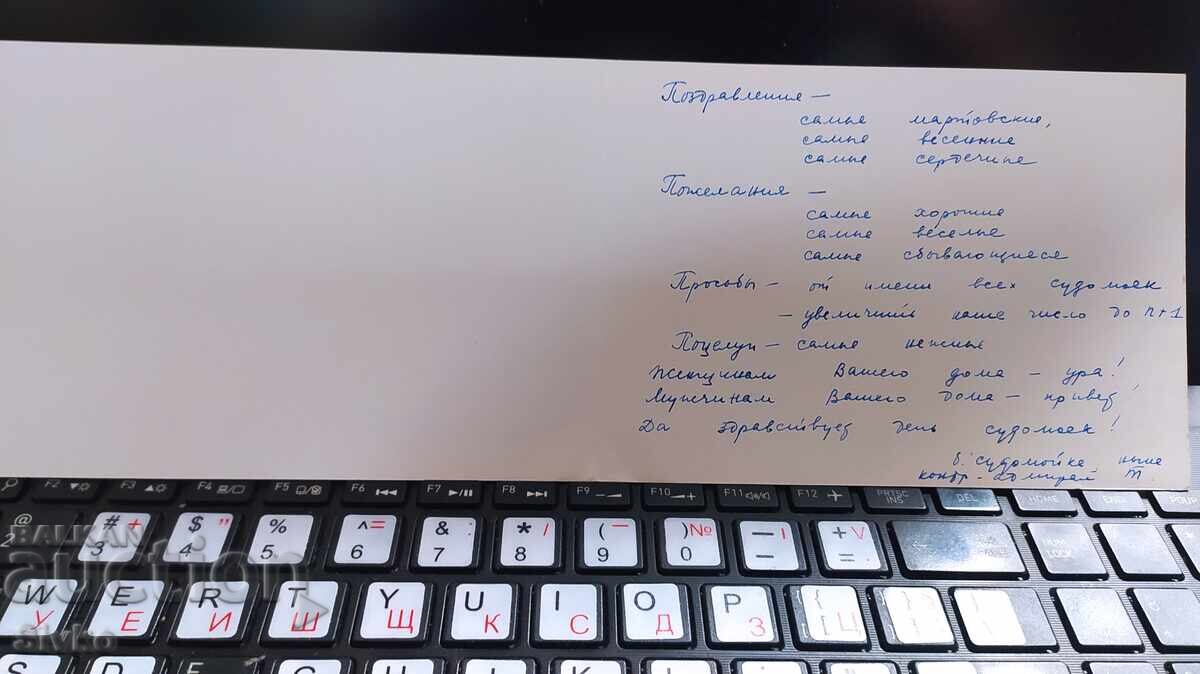 Поздравления —
самые мартовские,
самые весенние
самые сердечные
Пожелания —
самые хорошие
самые веселые
самые сбывающиеся
Просьбы — от имени всех судомоек
— увеличить наше число до n+1
Поцелуи — самые нежные
Женщинам Вашего дома — ура!
Мужчинам Вашего дома — привет!
Да здравствует день судомоек!
б. судомойка ныне
контр-адмирал Т.
F2 F3 F4 F5 F6 F7 F8 F9 F10 F11 F12 PRTSC DEL HOME END PGUP
@ 2 # + 3 $ " 4 % 5 ^ = 6 & 7 * / 8 ( 9 ) № 0 — I + V = NUM LOCK
W У E Е R И T Ш Y Щ U К I С O Д P З { [ Ц
BALKAN
auction
slvko